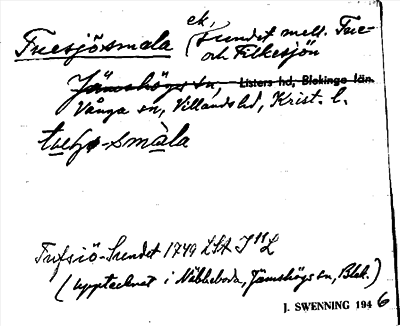 Truesjösmåla ek, (Sundet mell. True-
och Filkesjön
Jämshögs sn, Listers hd, Blekinge län.
Vånga sn, Villands hd, Krist. l.
-småla
Sundet 1749 LSA J11 L
(upptecknat i Näbbeboda, Jämshögs sn, Blek.)
J. SWENNING 1946